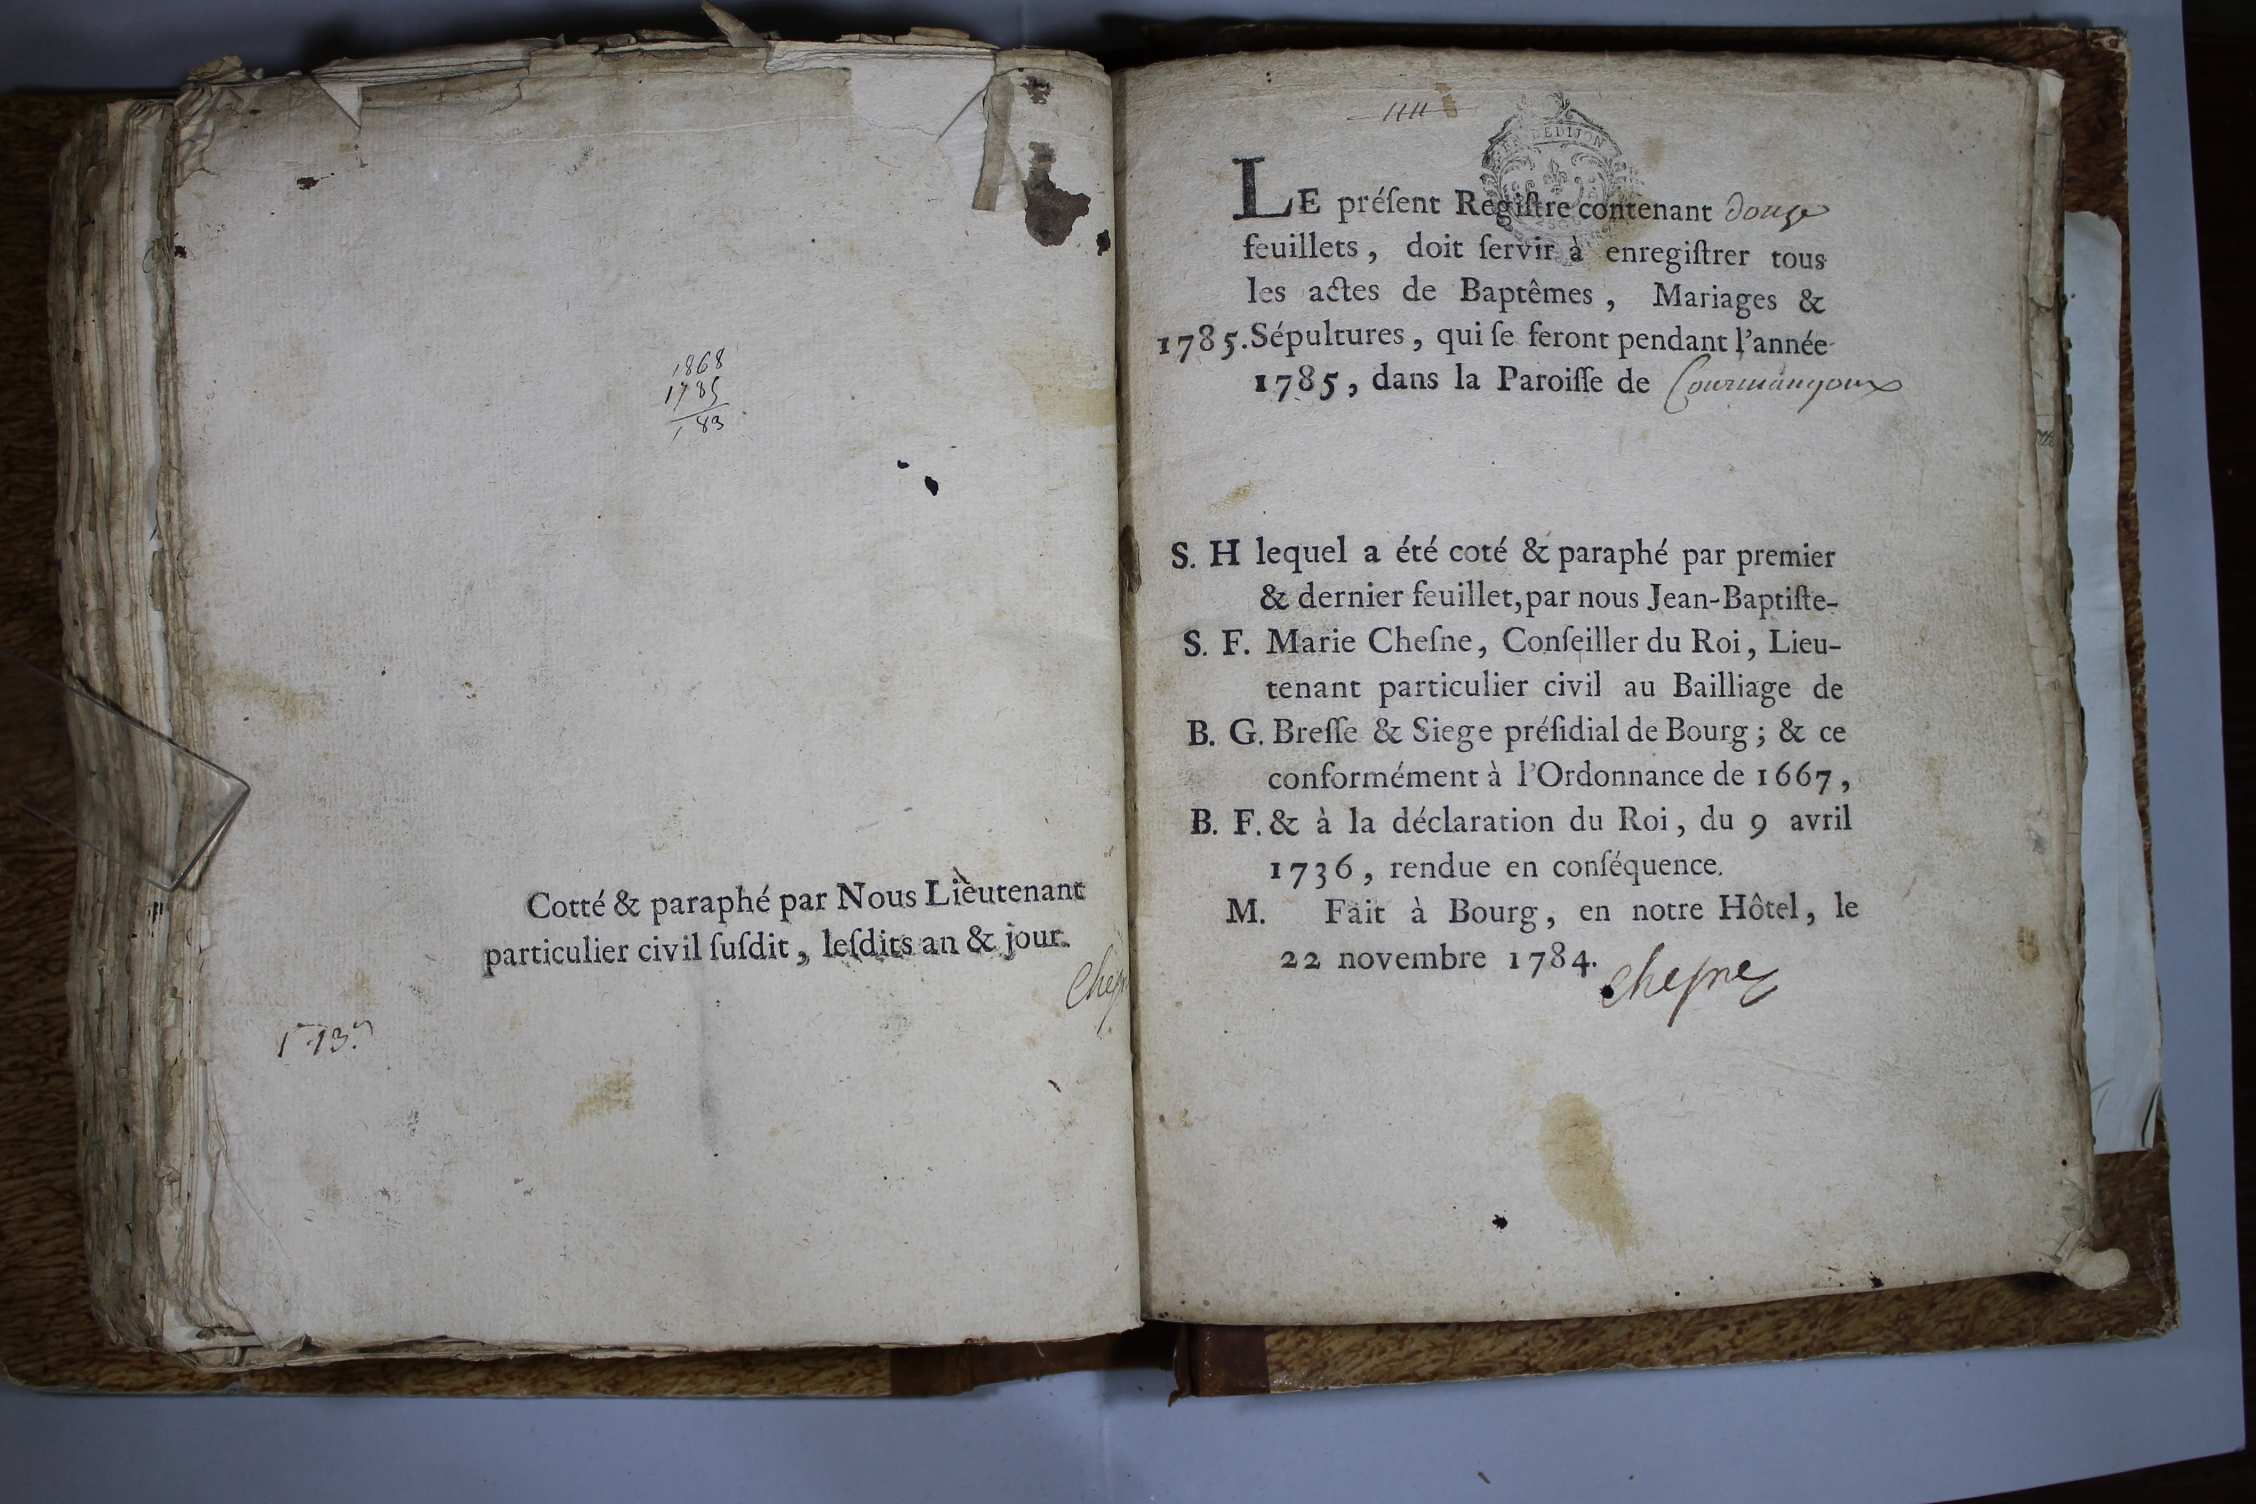 1868
1785
183
Cotté & paraphé par Nous Lieutenant
particulier civil ſuſdit, leſdits an & jour.
DE DIJON
LE préſent Regiſtre contenant douze
feuillets, doit ſervir à enregiſtrer tous
les actes de Baptêmes, Mariages &
1785. Sépultures, qui ſe feront pendant l'année
1785, dans la Paroiſſe de Courmangoux
S. H lequel a été coté & paraphé par premier
& dernier feuillet, par nous Jean-Baptiſte-
S. F. Marie Cheſne, Conſeiller du Roi, Lieu-
tenant particulier civil au Bailliage de
B. G. Breſſe & Siege préſidial de Bourg; & ce
conformément à l'Ordonnance de 1667,
B. F. & à la déclaration du Roi, du 9 avril
1736, rendue en conſéquence.
M. Fait à Bourg, en notre Hôtel, le
22 novembre 1784.
Cheſne